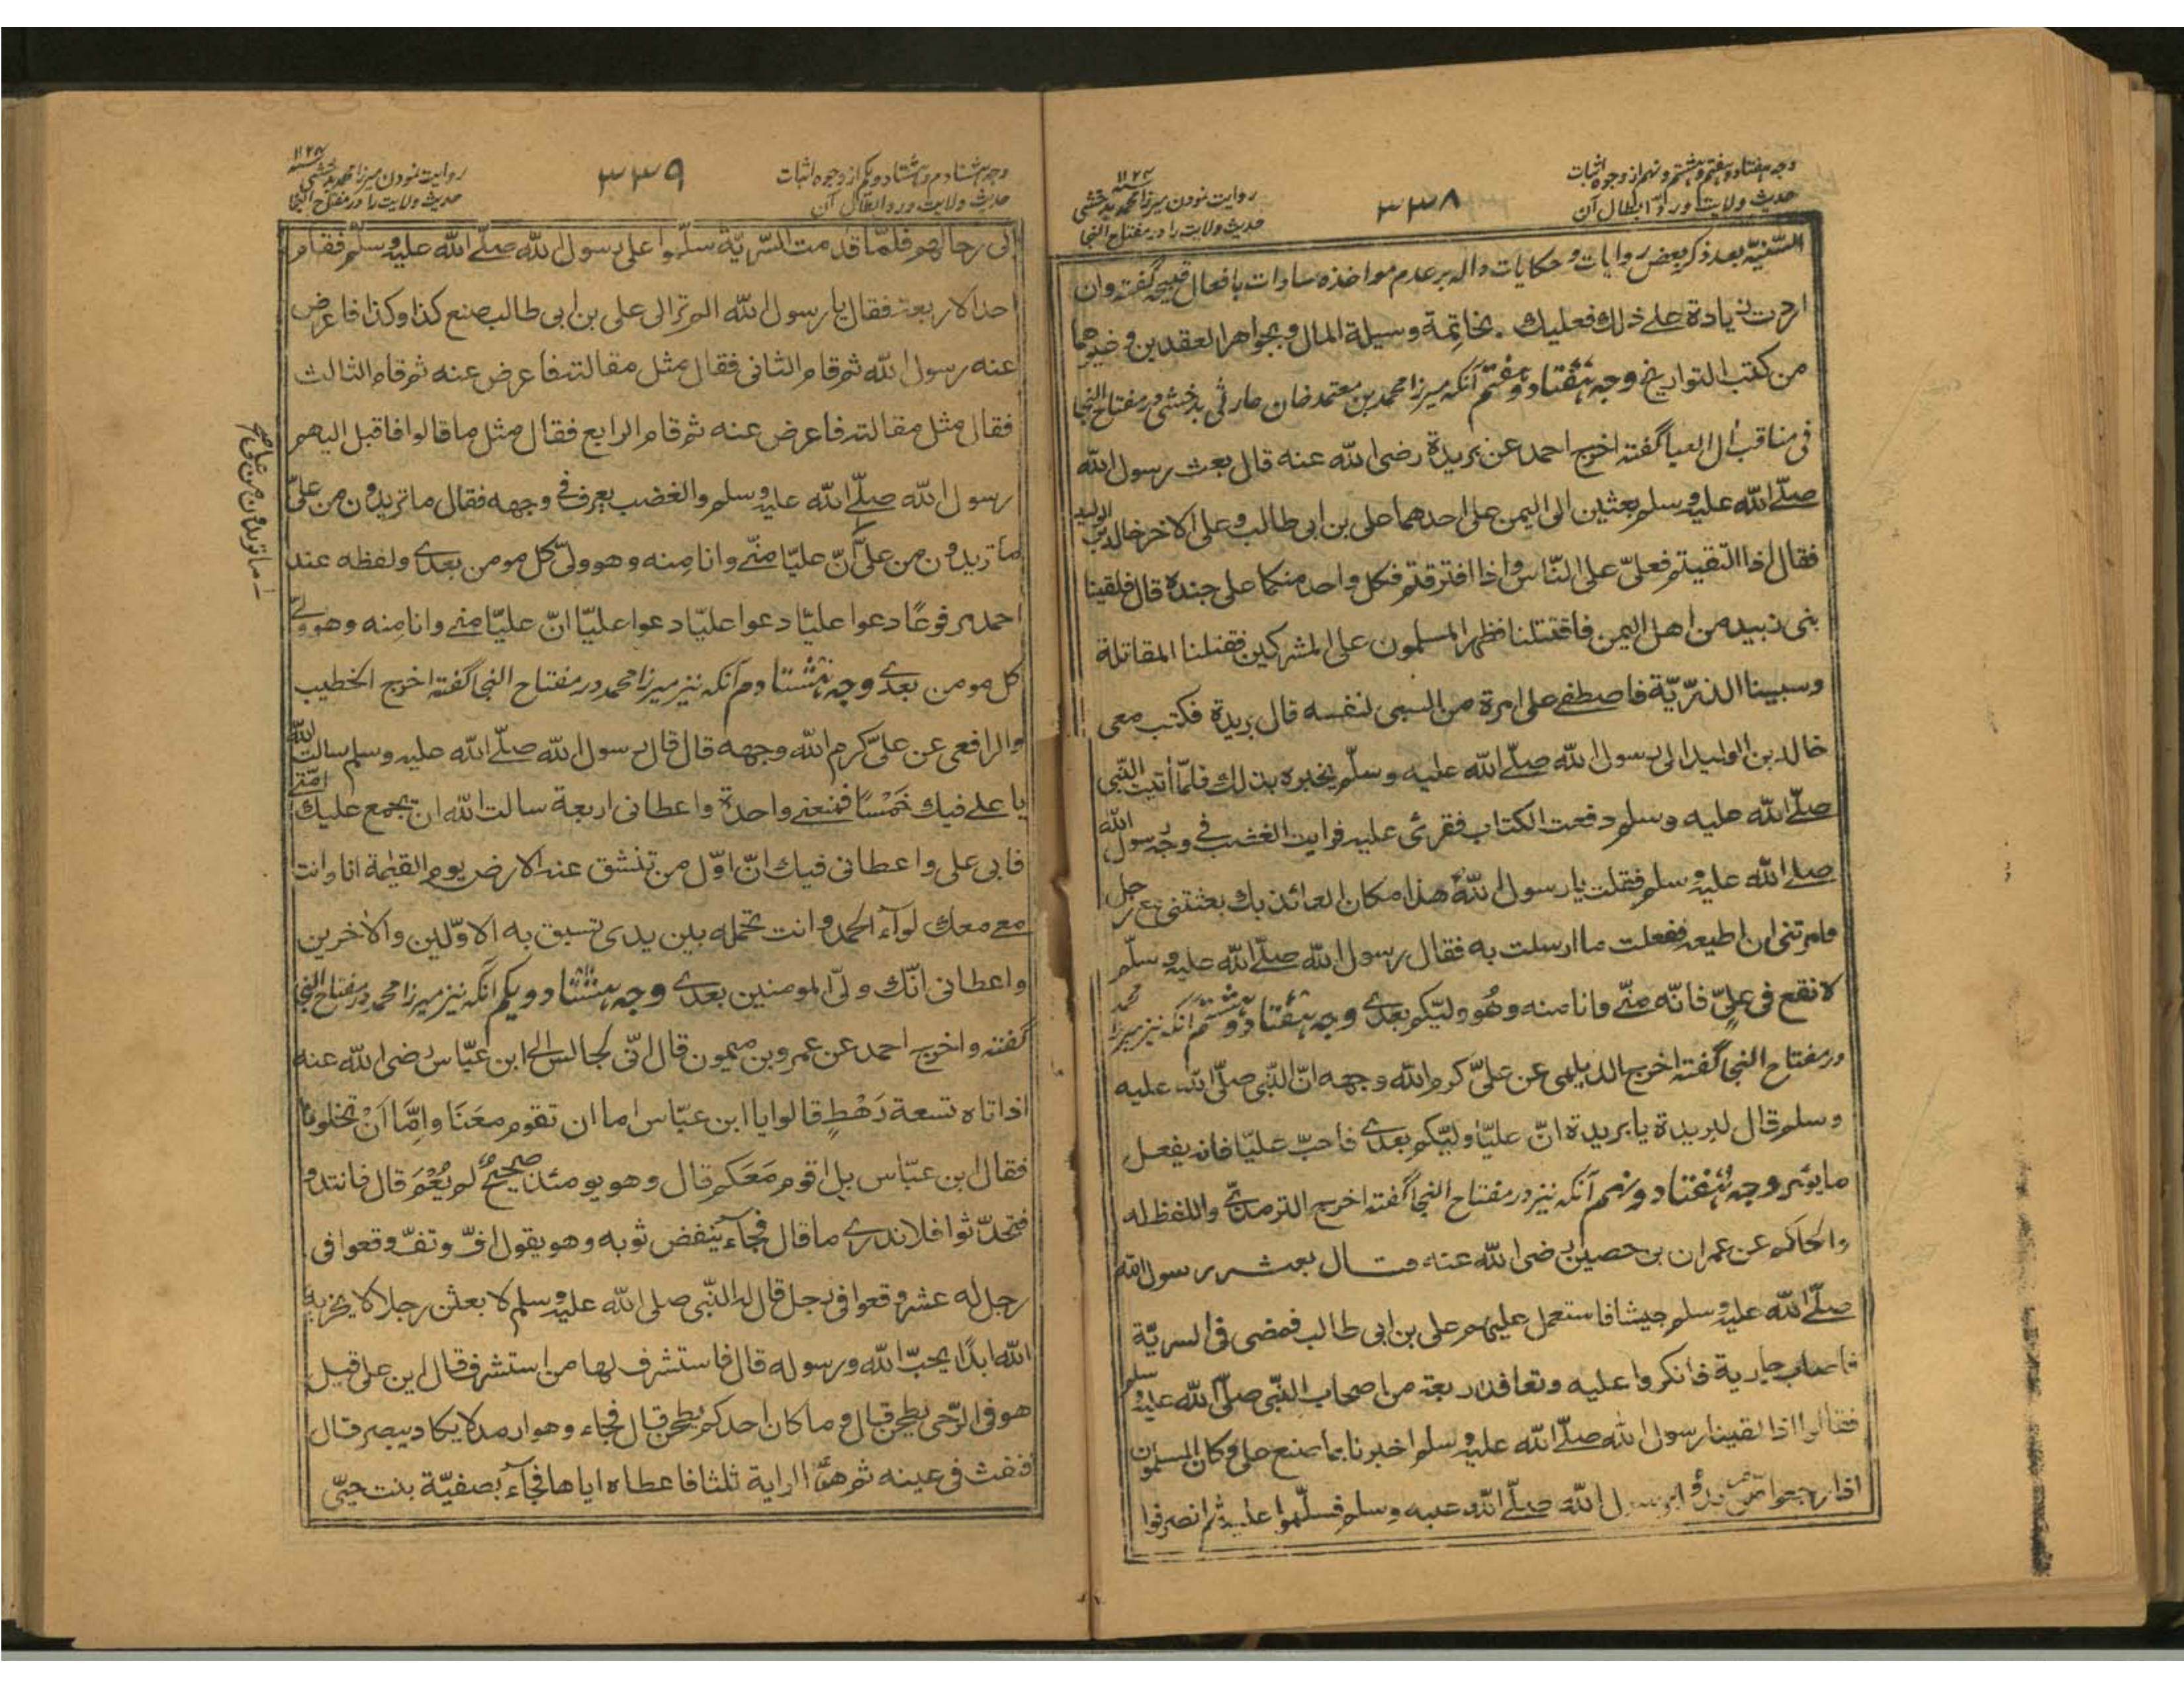 وجه هفتاد و هفتم و هشتم و نهم از وجوه اثبات
حدیث ولایت و رد ابطال آن
۳۳۸
۱۱۲۴ سنه
روایت نمودن میرزا محمد بدخشی
حدیث ولایت را در مفتاح النجا
السنیّة بعد ذکر بعض روایات و حکایات داله بر عدم مواخذه سادات بافعال قبیحه گفته وان
اردت زیادة علے ذلك فعلیك بخاتمة وسیلة المال وبجواهر العقدین وغیرهما
من کتب التواریخ وجه هفتاد و هفتم آنکه میرزا محمد بن معتمد خان حارثی بدخشی در مفتاح النجا
فی مناقب آل العبا گفته اخرج احمد عن بریدة رضی الله عنه قال بعث رسول الله
صلّے الله علیه وسلم بعثین الی الیمن علی احدهما علی بن ابی طالب وعلی الاخر خالد بن الولید
فقال اذا التقیتم فعلیّ علی النّاس واذا افترقتم فکل واحد منکما علی جنده قال فلقینا
بنی زبید من اهل الیمن فاقتتلنا فظهر المسلمون علی المشرکین فقتلنا المقاتلة
وسبینا الذرّیّة فاصطفے علی امرة من السبی لنفسه قال بریدة فکتب معی
خالد بن الولید الی رسول الله صلّے الله علیه وسلّم یخبره بذلك فلمّا أتیت النّبی
صلّے الله علیه وسلم دفعت الکتاب فقرئ علیه فرایت الغضب فے وجه رسول الله
صلے الله علیه وسلم فقلت یا رسول الله هذا مکان العائذ بك بعثتنی مع رجل
وامرتنی ان اطیعه ففعلت ما ارسلت به فقال رسول الله صلّے الله علیه وسلّم
لا تقع فی علیّ فانّه منّے وانا منه وهُو ولیّکم بعدے وجه هفتاد و هشتم آنکه نیز میرزا محمد
در مفتاح النجا گفته اخرج الدیلمی عن علیّ کرم الله وجهه انّ النّبی صلّے الله علیه
وسلم قال لبریدة یا بریدة انّ علیّا ولیّکم بعدے فاحبّ علیّا فانه یفعل
ما یؤمر وجه هفتاد و نهم آنکه نیز در مفتاح النجا گفته اخرج الترمذیّ واللفظ له
والحاکم عن عمران بن حصین رضی الله عنه قال بعث رسول الله
صلّے الله علیه وسلم جیشا فاستعمل علیهم علی بن ابی طالب فمضی فی السریّة
فاصاب جاریة فانکروا علیه وتعاقد اربعة من اصحاب النّبی صلّے الله علیه وسلم
فقالوا اذا لقینا رسول الله صلّے الله علیه وسلم اخبرنا بما صنع علی وکان المسلمون
اذا رجعوا من بدؤا برسول الله صلّے الله علیه وسلم فسلّموا علیه ثم انصرفوا
وجه هشتادم و هشتاد و یکم از وجوه اثبات
حدیث ولایت و رد ابطال آن
۳۳۹
۱۱۲۴ سنه
روایت نمودن میرزا محمد بدخشی
حدیث ولایت را در مفتاح النجا
الی رحالهم فلمّا قدمت السّریّة سلّموا علی رسول الله صلّے الله علیه وسلّم فقام
احد الاربعة فقال یا رسول الله الم تر الی علی بن ابی طالب صنع کذا وکذا فاعرض
عنه رسول الله ثم قام الثانی فقال مثل مقالته فاعرض عنه ثم قام الثالث
فقال مثل مقالته فاعرض عنه ثم قام الرابع فقال مثل ما قالوا فاقبل الیهم
رسول الله صلّے الله علیه وسلم والغضب یعرف فے وجهه فقال ما تریدون من علیّ
ما تریدون من علیّ انّ علیّا منّے وانا منه وهو ولیّ کل مومن بعدے ولفظه عند
احمد مرفوعًا دعوا علیّا دعوا علیّا دعوا علیّا انّ علیّا منے وانا منه وهو ولیّ
کل مومن بعدے وجه هشتادم آنکه نیز میرزا محمد در مفتاح النجا گفته اخرج الخطیب
والرافعی عن علیّ کرم الله وجهه قال قال رسول الله صلّے الله علیه وسلم سالت الله
یا علے فیك خَمْسًا فمنعنے واحدة واعطانی اربعة سالت الله ان یجمع علیك امّتے
فابی علی واعطانی فیك انّ اوّل من تنشق عنه الارض یوم القیٰمة انا وانت
مع معك لوآء الحمد وانت تحمله بین یدی تسبق به الاوّلین والاٰخرین
واعطانی انّك ولیّ المومنین بعدے وجه هشتاد و یکم آنکه نیز میرزا محمد در مفتاح النجا
گفته واخرج احمد عن عمرو بن میمون قال انّی لجالس الی ابن عبّاس رضی الله عنه
اذ اتاه تسعة رَهْطٍ قالوا یا ابن عبّاس اما ان تقوم معَنَا واِمَّا اَنْ تخلونا
فقال ابن عبّاس بل اقوم مَعَکم قال وهو یومئذ صحیحٌ لم یُعْمَ قال فانتدو
فتحدّثوا فلا ندرے ما قال فجآء ینفض ثوبه وهو یقول افّ وتفّ وقعوا فی
رجل له عشر وقعوا فی رجل قال له النّبی صلی الله علیه وسلم لابعثن رجلا لا یخزیه
الله ابدًا یحبّ الله ورسوله قال فاستشرف لها من استشرف قال این علی قیل
هو فی الرّحی یطحن قال وما کان احدکم یطحن قال فجاء وهو ارمد لا یکاد یبصر قال
فنفث فی عینه ثم هزّ الرایة ثلثا فاعطاه ایاها فجآء بصفیّة بنت حییّ
ما تریدون من علیّ